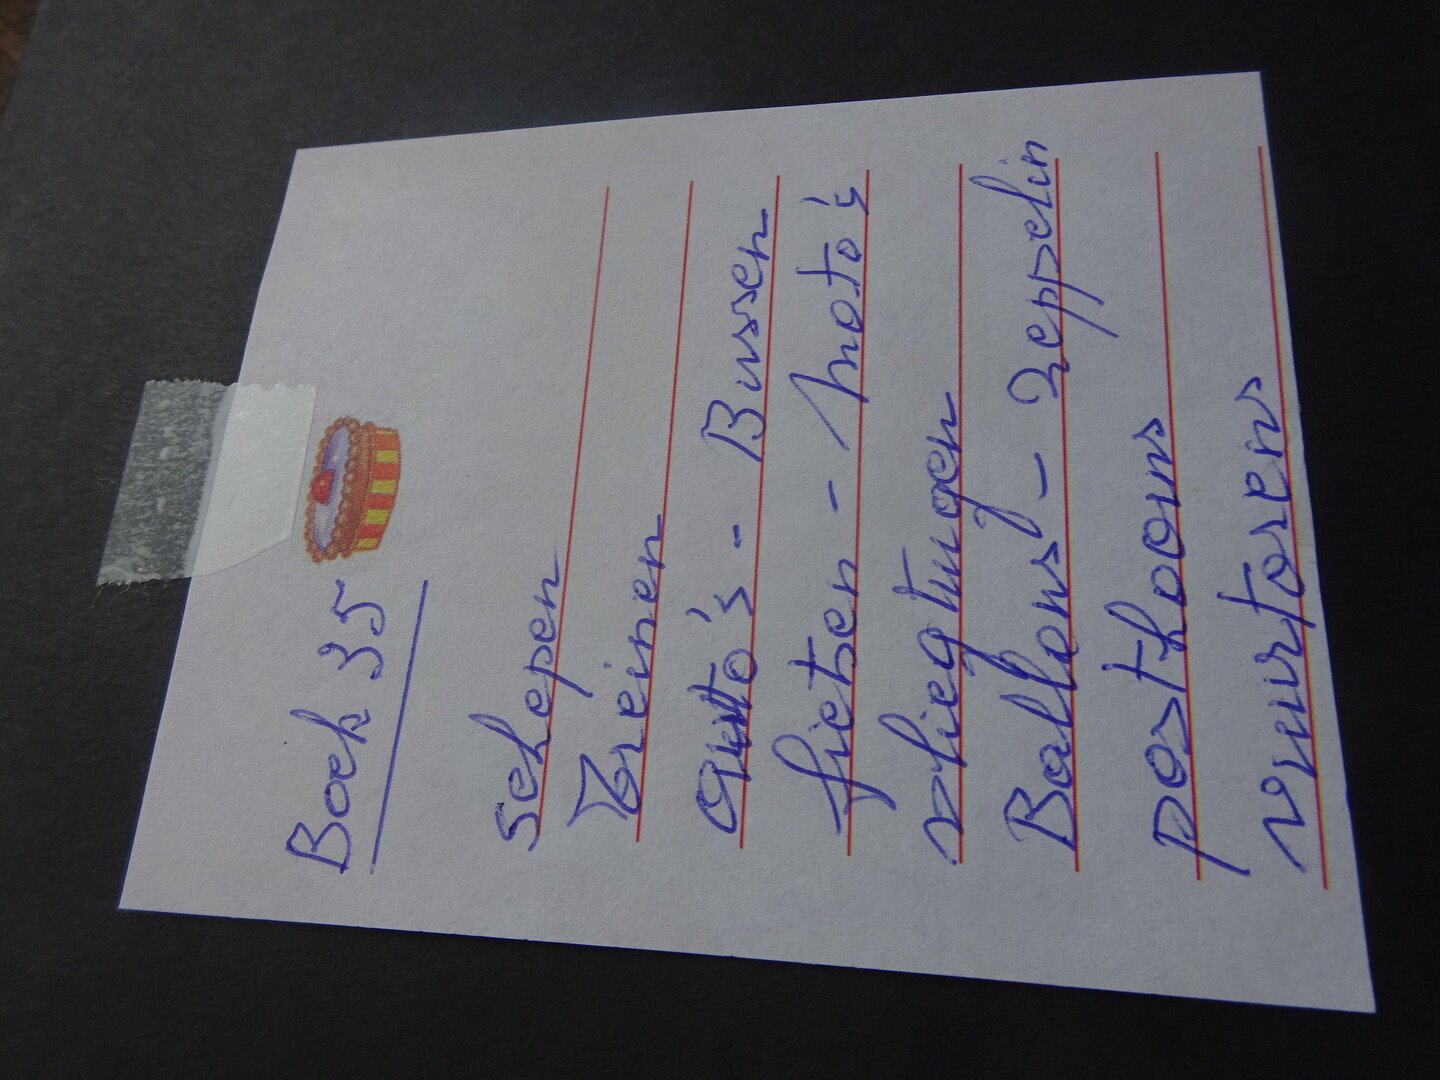 Boek 35
schepen
Treinen
Auto's - Bussen
fietsen - moto's
vliegtuigen
Ballons - Zeppelin
posthoorns
vuurtorens